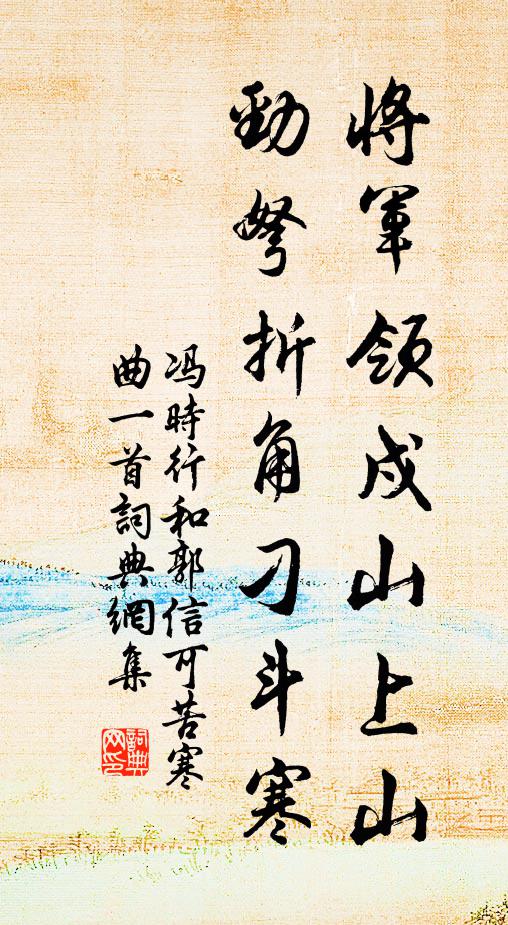 將軍領戍山上山
勁弩折角刁斗寒
冯時行和郭信可苦寒
曲一首詞典網集
詞典
网印